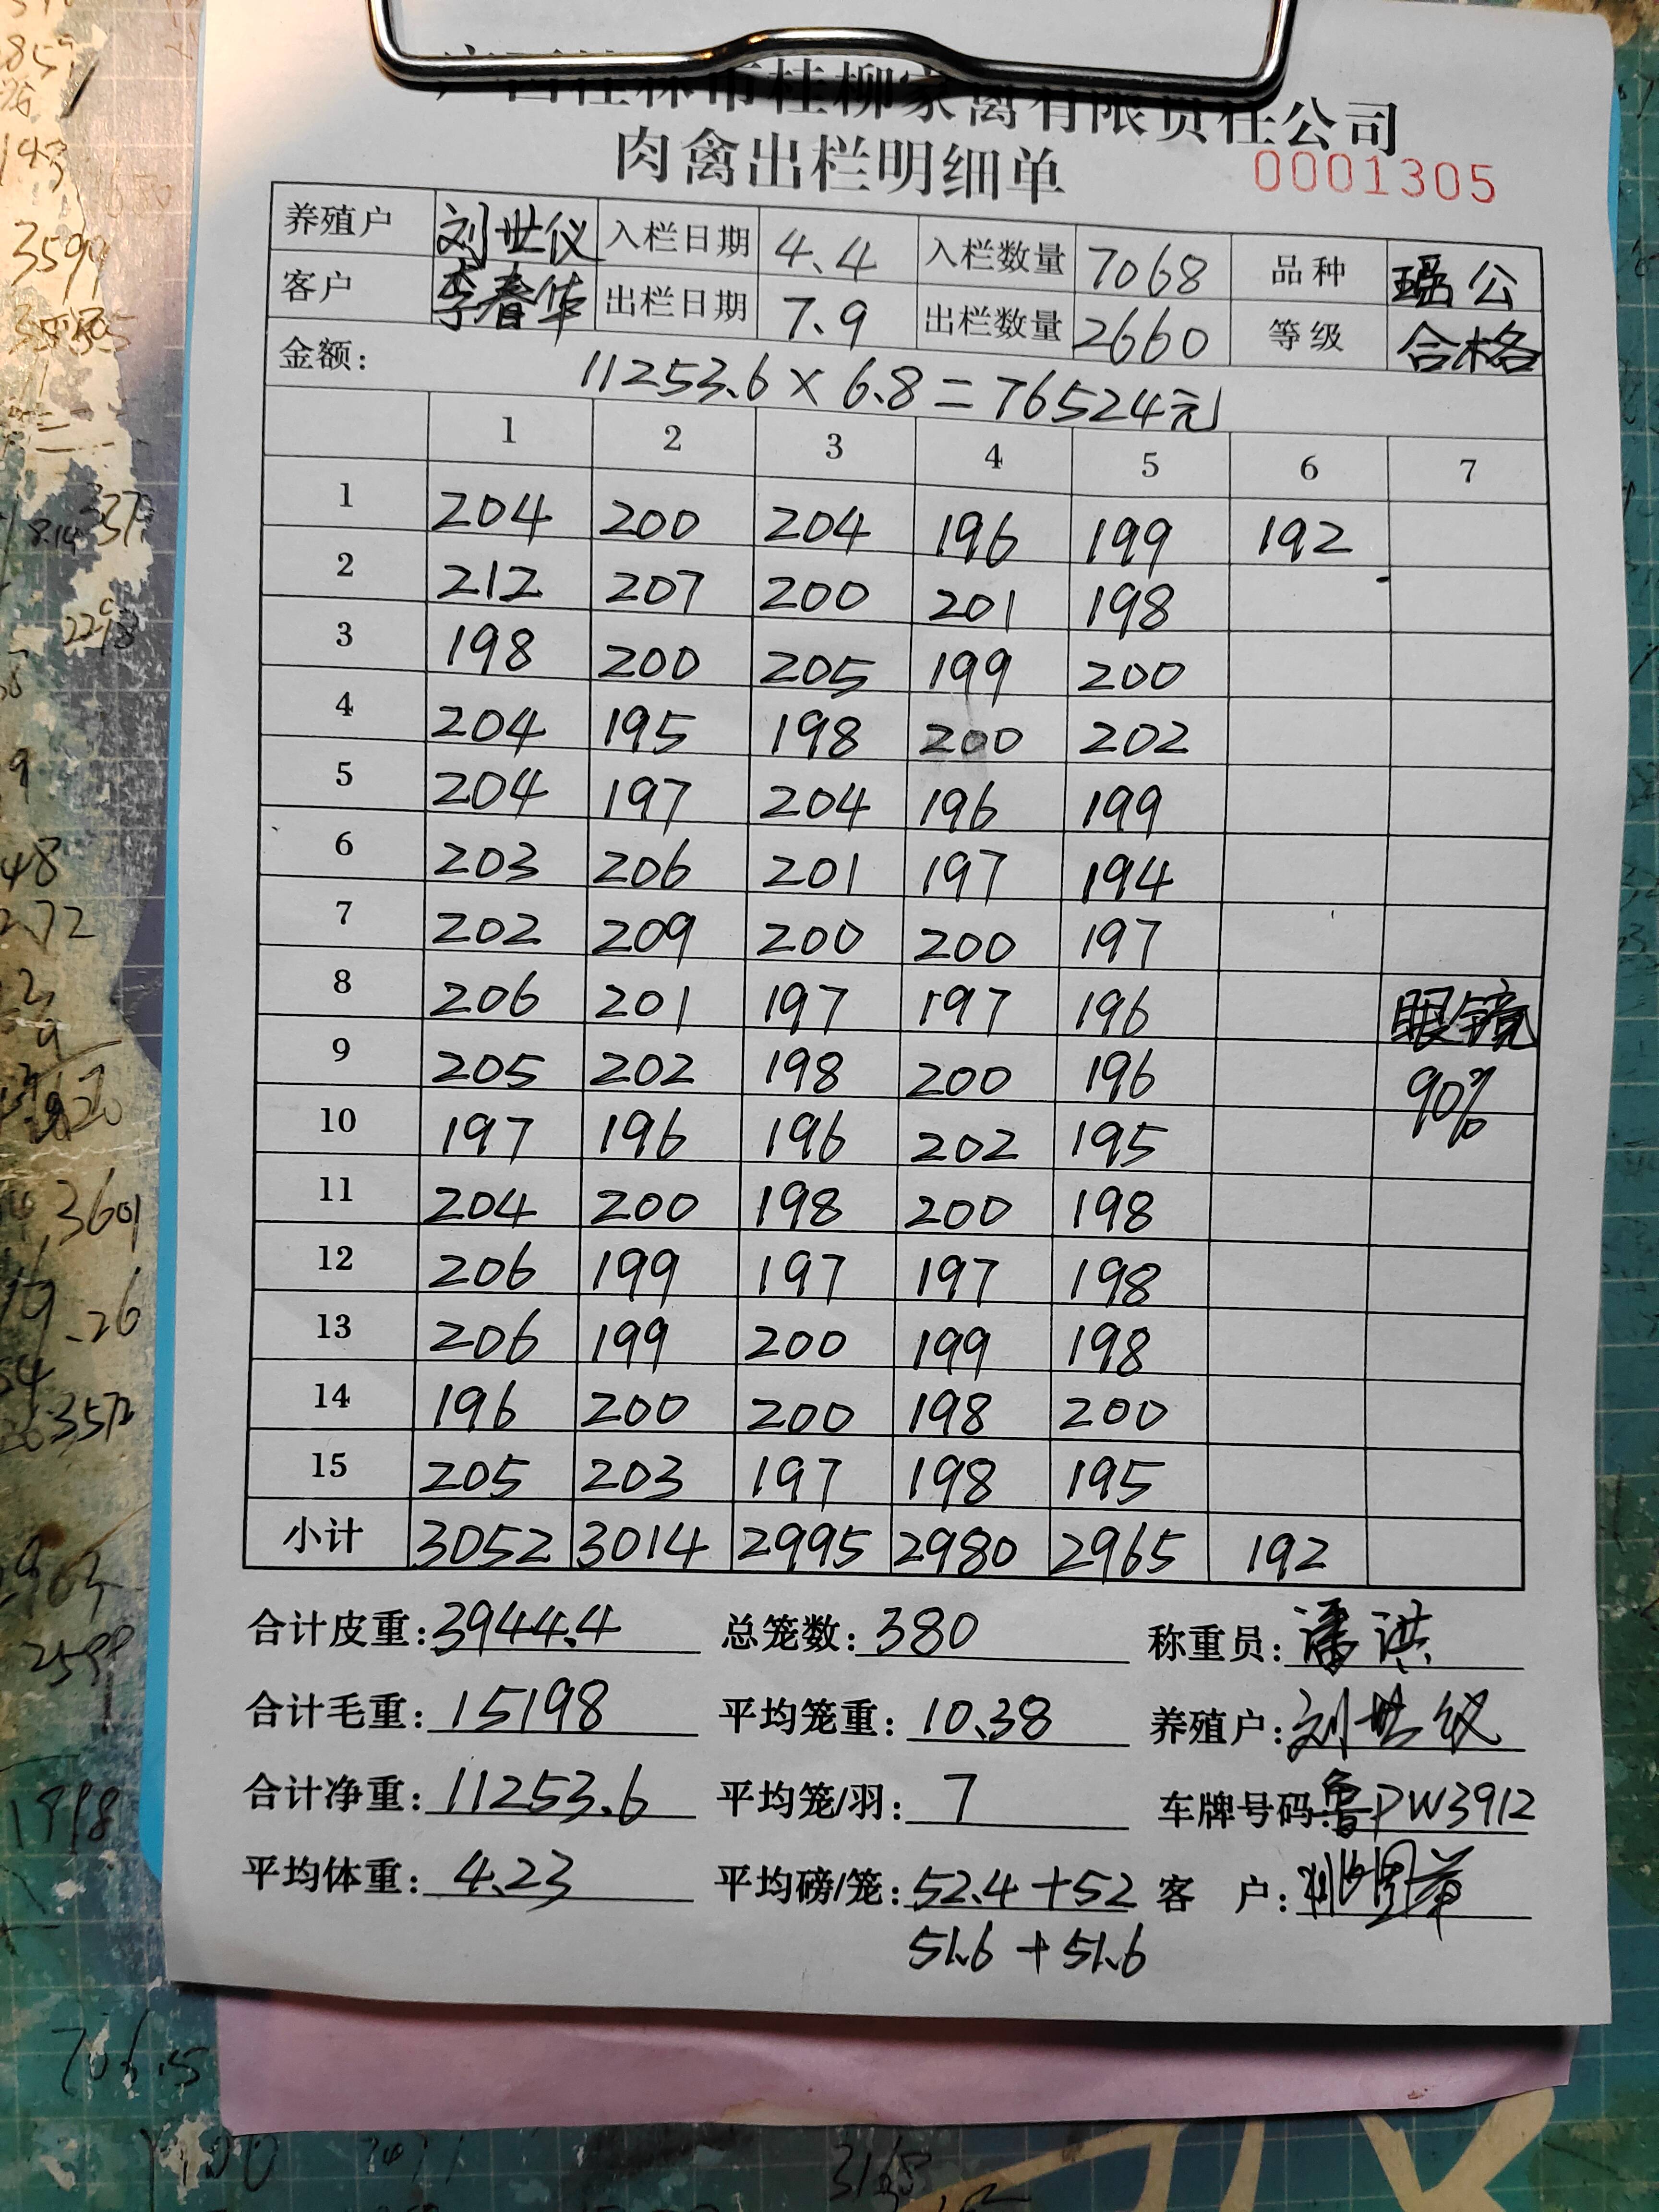 广西桂林市桂柳家禽有限责任公司
肉禽出栏明细单 0001305
养殖户 刘世仪 入栏日期 4.4 入栏数量 7068 品种 瑶公
客户 李春华 出栏日期 7.9 出栏数量 2660 等级 合格
金额: 11253.6 × 6.8 = 76524元
1 2 3 4 5 6 7
1 204 200 204 196 199 192
2 212 207 200 201 198
3 198 200 205 199 200
4 204 195 198 200 202
5 204 197 204 196 199
6 203 206 201 197 194
7 202 209 200 200 197
8 206 201 197 197 196 眼镜
9 205 202 198 200 196 90%
10 197 196 196 202 195
11 204 200 198 200 198
12 206 199 197 197 198
13 206 199 200 199 198
14 196 200 200 198 200
15 205 203 197 198 195
小计 3052 3014 2995 2980 2965 192
合计皮重: 3944.4 总笼数: 380 称重员: 潘洪
合计毛重: 15198 平均笼重: 10.38 养殖户: 刘世仪
合计净重: 11253.6 平均笼/羽: 7 车牌号码: 鲁PW3912
平均体重: 4.23 平均磅/笼: 52.4 + 52 客 户:
51.6 + 51.6